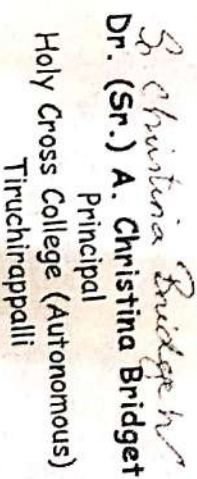 Sr. Christina Bridget
Dr. (Sr.) A. Christina Bridget
Principal
Holy Cross College (Autonomous)
Tiruchirappalli